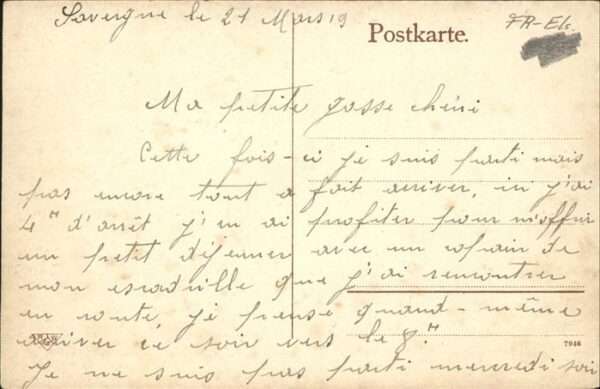 Saverne le 21 Mars 19
Postkarte.
FR-Els.
Ma petite gosse chéri
Cette fois-ci je suis parti mais
pas encore tout a fait arriver, ici j'ai
4H d'arrêt j'en ai profiter pour m'offrir
un petit déjeuner avec un copain de
mon escadrille que j'ai rencontrer
en route, je pense quand-même
arriver ce soir vers le 8H
7946
Je ne suis pas parti mercredi soir